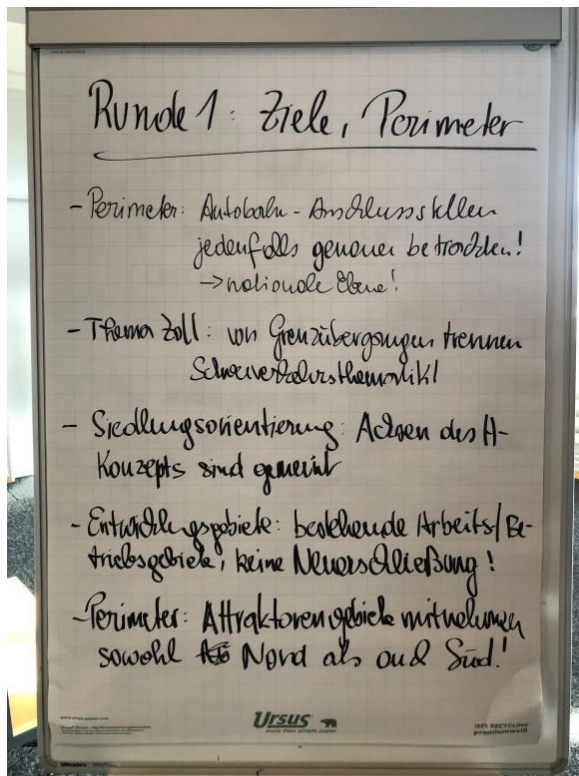 Runde 1: Ziele, Perimeter
- Perimeter: Autobahn-Anschlussstellen
jedenfalls genauer betrachten!
→ nationale Ebene!
- Thema Zoll: von Grenzübergängen trennen
Schwerverkehrsthematik!
- Siedlungsorientierung: Achsen des A-
Konzepts sind gemeint
- Entwicklungsgebiete: bestehende Arbeits/Be-
triebsgebiete, keine Neuerschließung!
- Perimeter: Attraktorengebiete mitnehmen
sowohl Nord als auch Süd!
www.ursus-paper.com
Ursus
more than simple paper
100% RECYCLING
premiumweiß